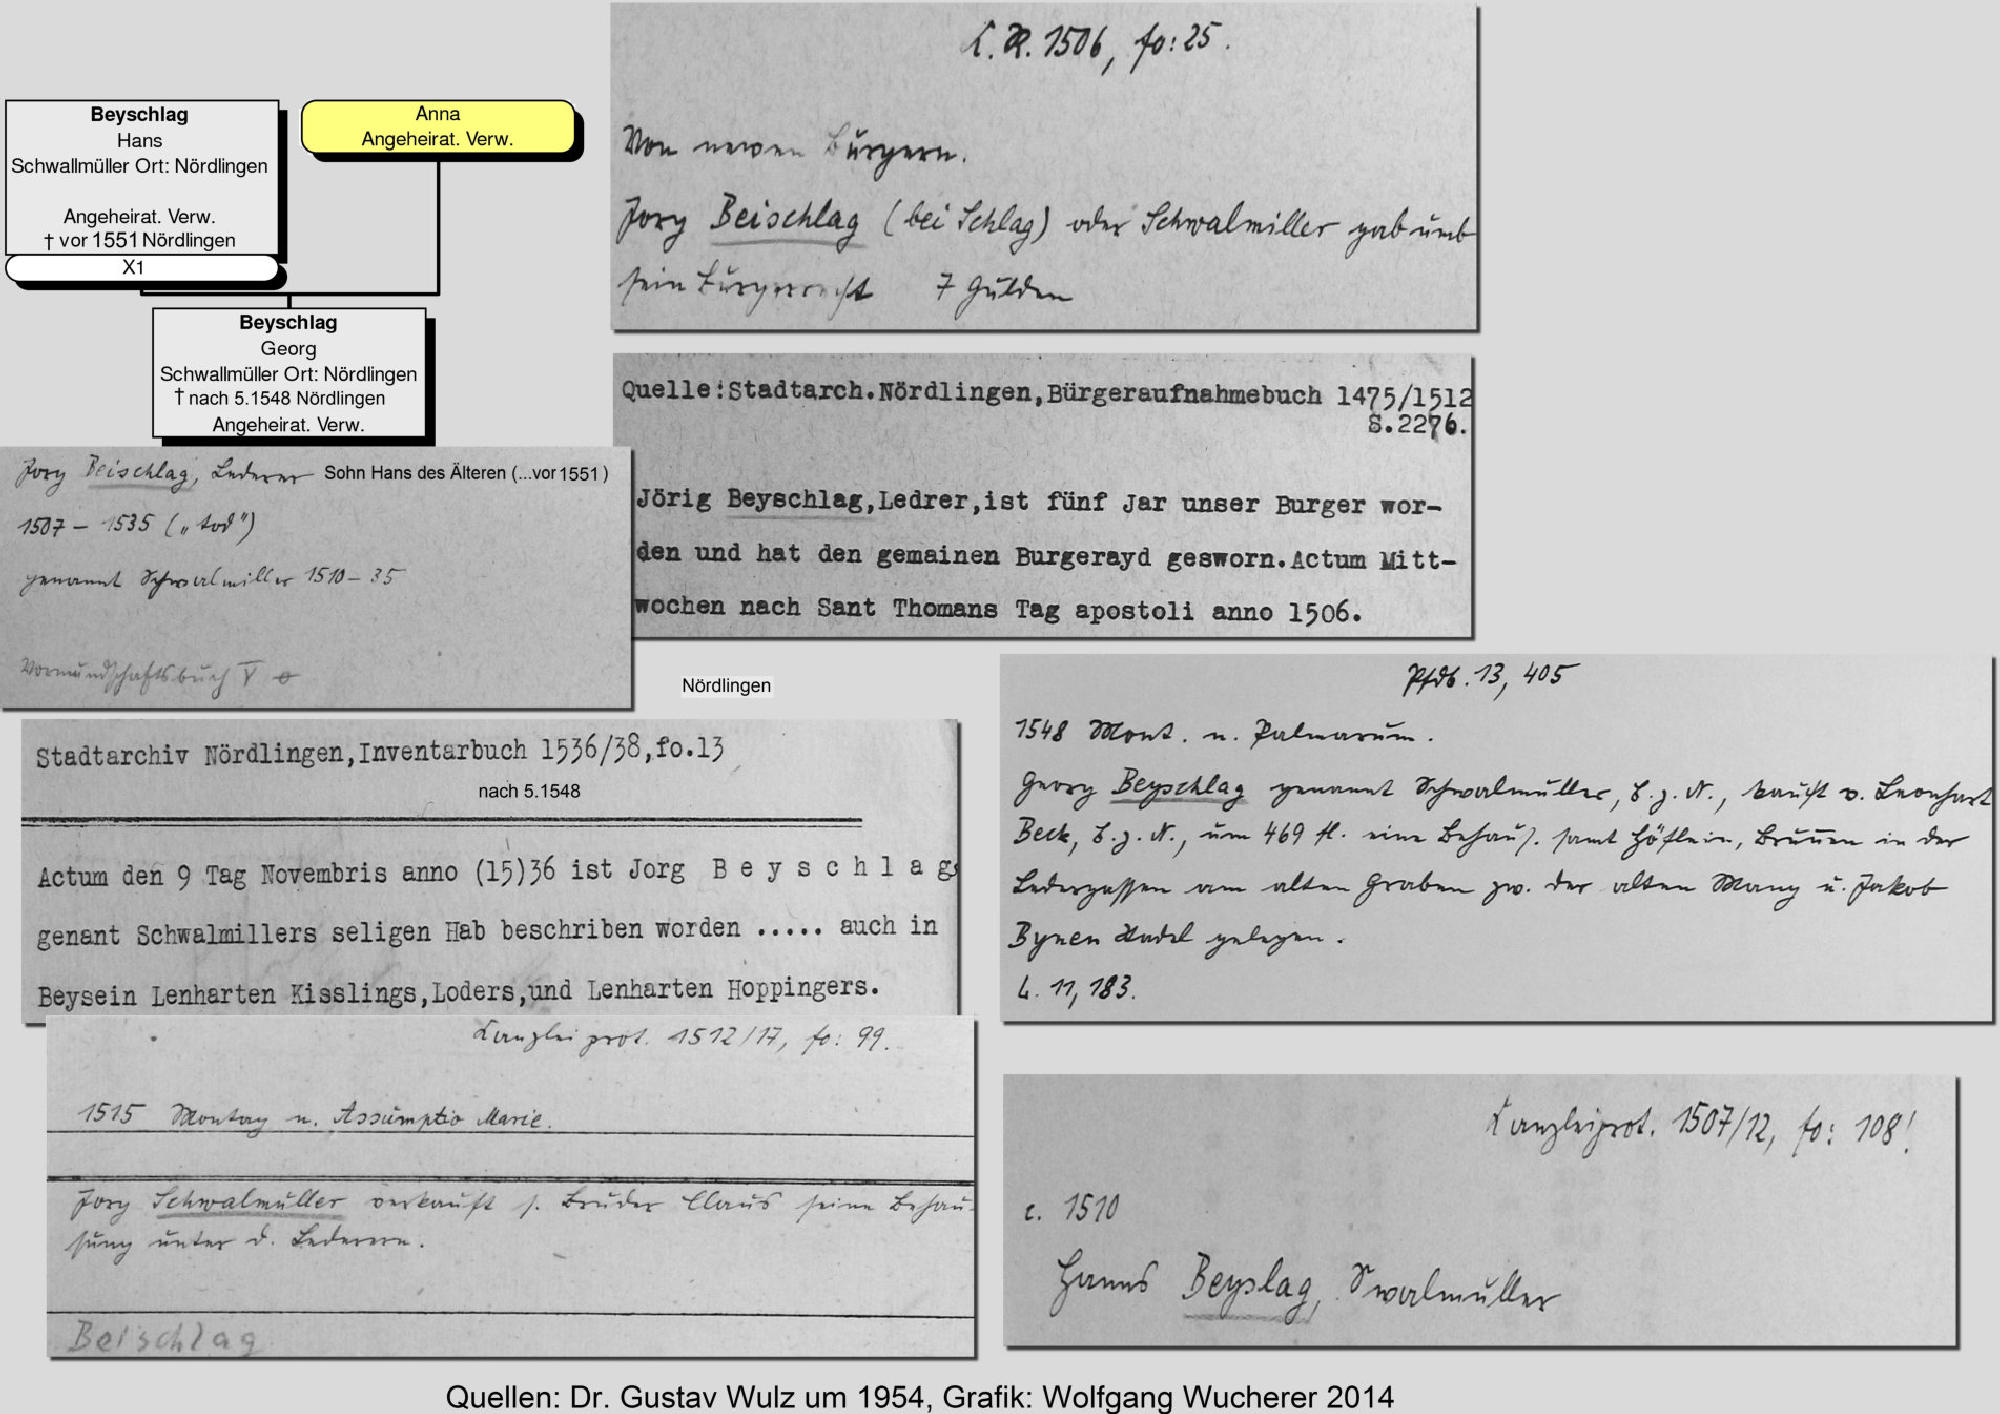 Beyschlag
Hans
Schwallmüller Ort: Nördlingen
Angeheirat. Verw.
† vor 1551 Nördlingen
X1
Anna
Angeheirat. Verw.
Beyschlag
Georg
Schwallmüller Ort: Nördlingen
† nach 5.1548 Nördlingen
Angeheirat. Verw.
K.R. 1506, fo: 25.
Von newen Bürgern.
Jorg Beischlag (bei Schlag) oder Schwalmiller gab umb
sein Bürgerrecht 7 Gulden
Quelle:Stadtarch.Nördlingen,Bürgeraufnahmebuch 1475/1512
S.2276.
Jörig Beyschlag,Ledrer,ist fünf Jar unser Burger wor-
den und hat den gemainen Burgerayd gesworn.Actum Mitt-
wochen nach Sant Thomans Tag apostoli anno 1506.
Jorg Beischlag, Lederer Sohn Hans des Älteren (...vor 1551)
1507 – 1535 („tod")
genannt Schwalmiller 1510–35
Vormundschaftsbuch V
Nördlingen
Stadtarchiv Nördlingen,Inventarbuch 1536/38,fo.13
nach 5.1548
Actum den 9 Tag Novembris anno (15)36 ist Jorg B e y s c h l a g s
genant Schwalmillers seligen Hab beschriben worden ..... auch in
Beysein Lenharten Kisslings,Loders,und Lenharten Hoppingers.
Pfdb. 13, 405
1548 Mont. n. Palmarum.
Georg Beyschlag genannt Schwalmüller, B. z. N., kauft v. Leonhart
Beck, B. z. N., um 469 fl. eine Behaus. samt Höflein, Brunnen in der
Ledergassen am alten Graben zw. der alten Mang u. Jakob
Bynen Stadel gelegen.
L. 11, 183.
Kanzleiprot. 1512/17, fo: 99.
1515 Montag n. Assumptio Marie.
Jorg Schwalmüller verkauft s. Bruder Claus seine Behau-
sung unter d. Lederern.
Beischlag
Kanzleiprot. 1507/12, fo: 108!
c. 1510
Hanns Beyslag, Swalmüller
Quellen: Dr. Gustav Wulz um 1954, Grafik: Wolfgang Wucherer 2014